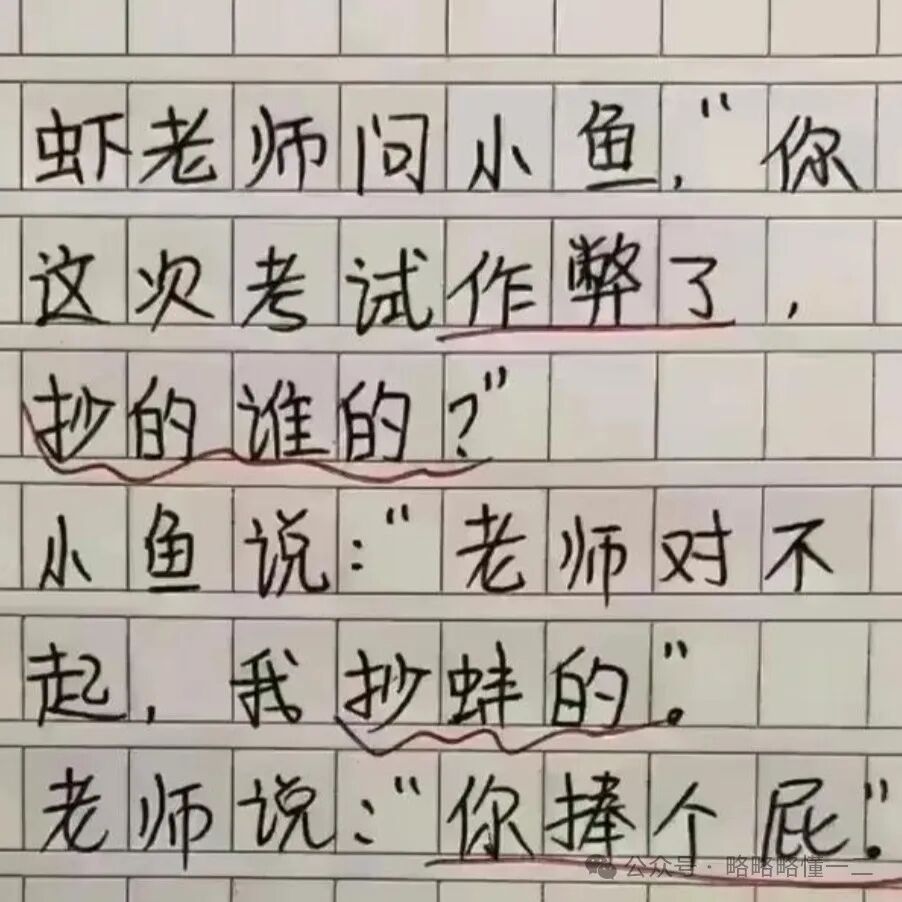 虾老师问小鱼，“你
这次考试作弊了，
抄的谁的？”
小鱼说：“老师对不
起，我抄蚌的”。
老师说：“你捧个屁”。
公众号·略略略懂一二